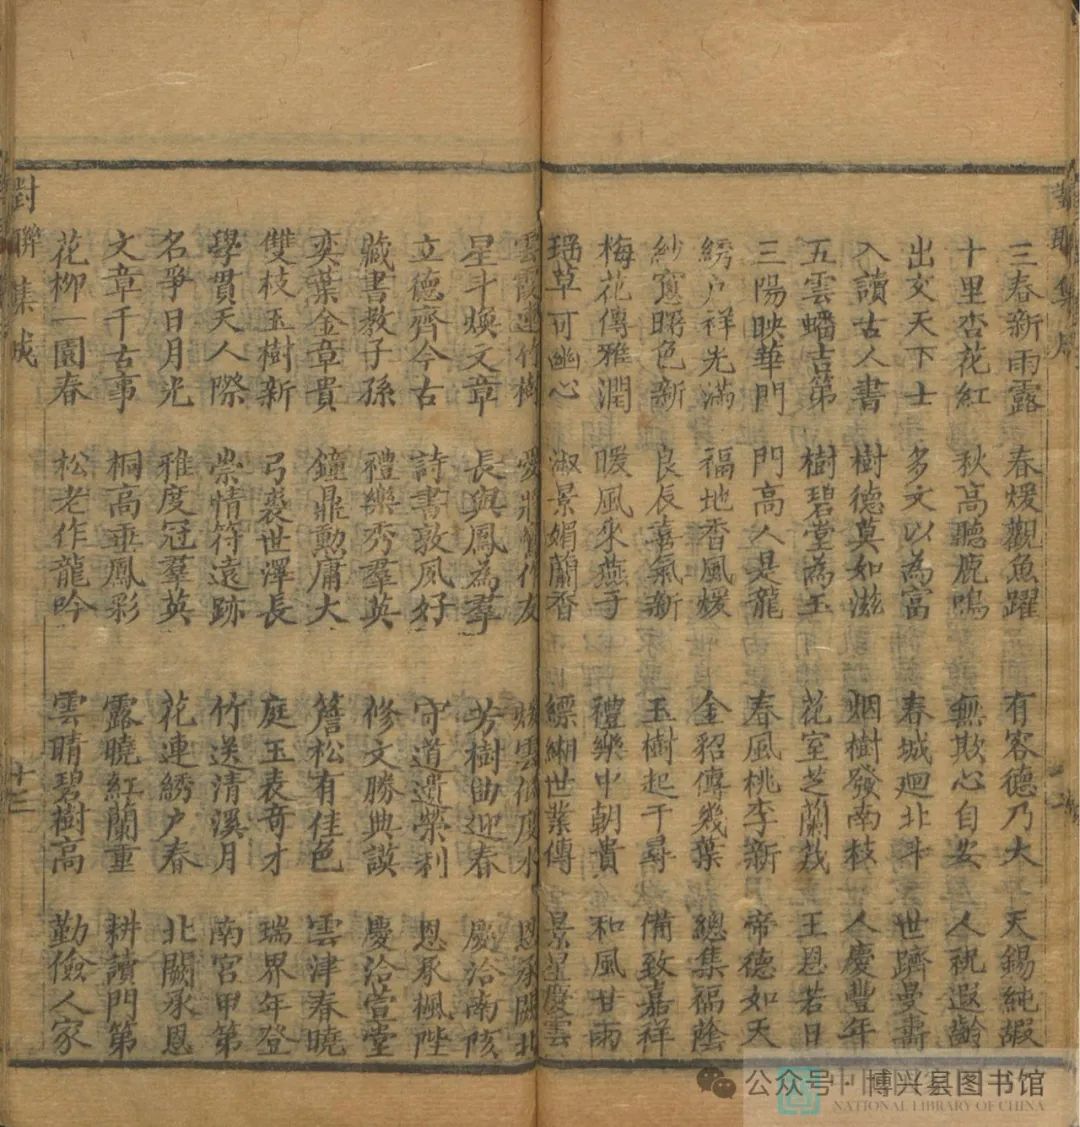 三春新雨露 春煖觀魚躍 有容德乃大 天錫純嘏
十里杏花紅 秋高聽鹿鳴 無欺心自安 人祝遐齡
出交天下士 多文以為富 春城迴北斗 世躋曼壽
入讀古人書 樹德莫如滋 烟樹發南枝 人慶豐年
五雲蟠吉第 樹碧堂為玉 花室芝蘭茂 王恩若日
三陽映華門 門高人是龍 春風桃李新 帝德如天
綉户祥光滿 福地香風煖 金貂傳幾葉 總集福蔭
紗窻曙色新 良辰喜氣新 玉樹起千尋 備致嘉祥
梅花傳雅潤 暖風來燕子 禮樂中朝貴 和風甘雨
瑶草可幽心 淑景媚蘭香 縹緗世業傳 景星慶雲
雲霞連竹樹 愛 作友 雲低度水 恩承闕北
星斗煥文章 長與鳳為羣 芳樹曲迎春 慶洽南陔
立德齊今古 詩書敦夙好 守道遺榮利 恩承楓陛
藏書教子孫 禮樂秀羣英 修文勝典謨 慶洽萱堂
奕葉金章貴 鐘鼎勳庸大 簷松有佳色 雲津春曉
雙枝玉樹新 弓裘世澤長 庭玉表奇才 瑞界年登
學貫天人際 崇情符遠跡 竹送清溪月 南宮甲第
名爭日月光 雅度冠羣英 花連綉户春 北闕承恩
文章千古事 桐高垂鳳彩 露曉紅蘭重 耕讀門第
花柳一園春 松老作龍吟 雲晴碧樹高 勤儉人家
對聯集成
十三
公众号·博兴县图书馆
NATIONAL LIBRARY OF CHINA